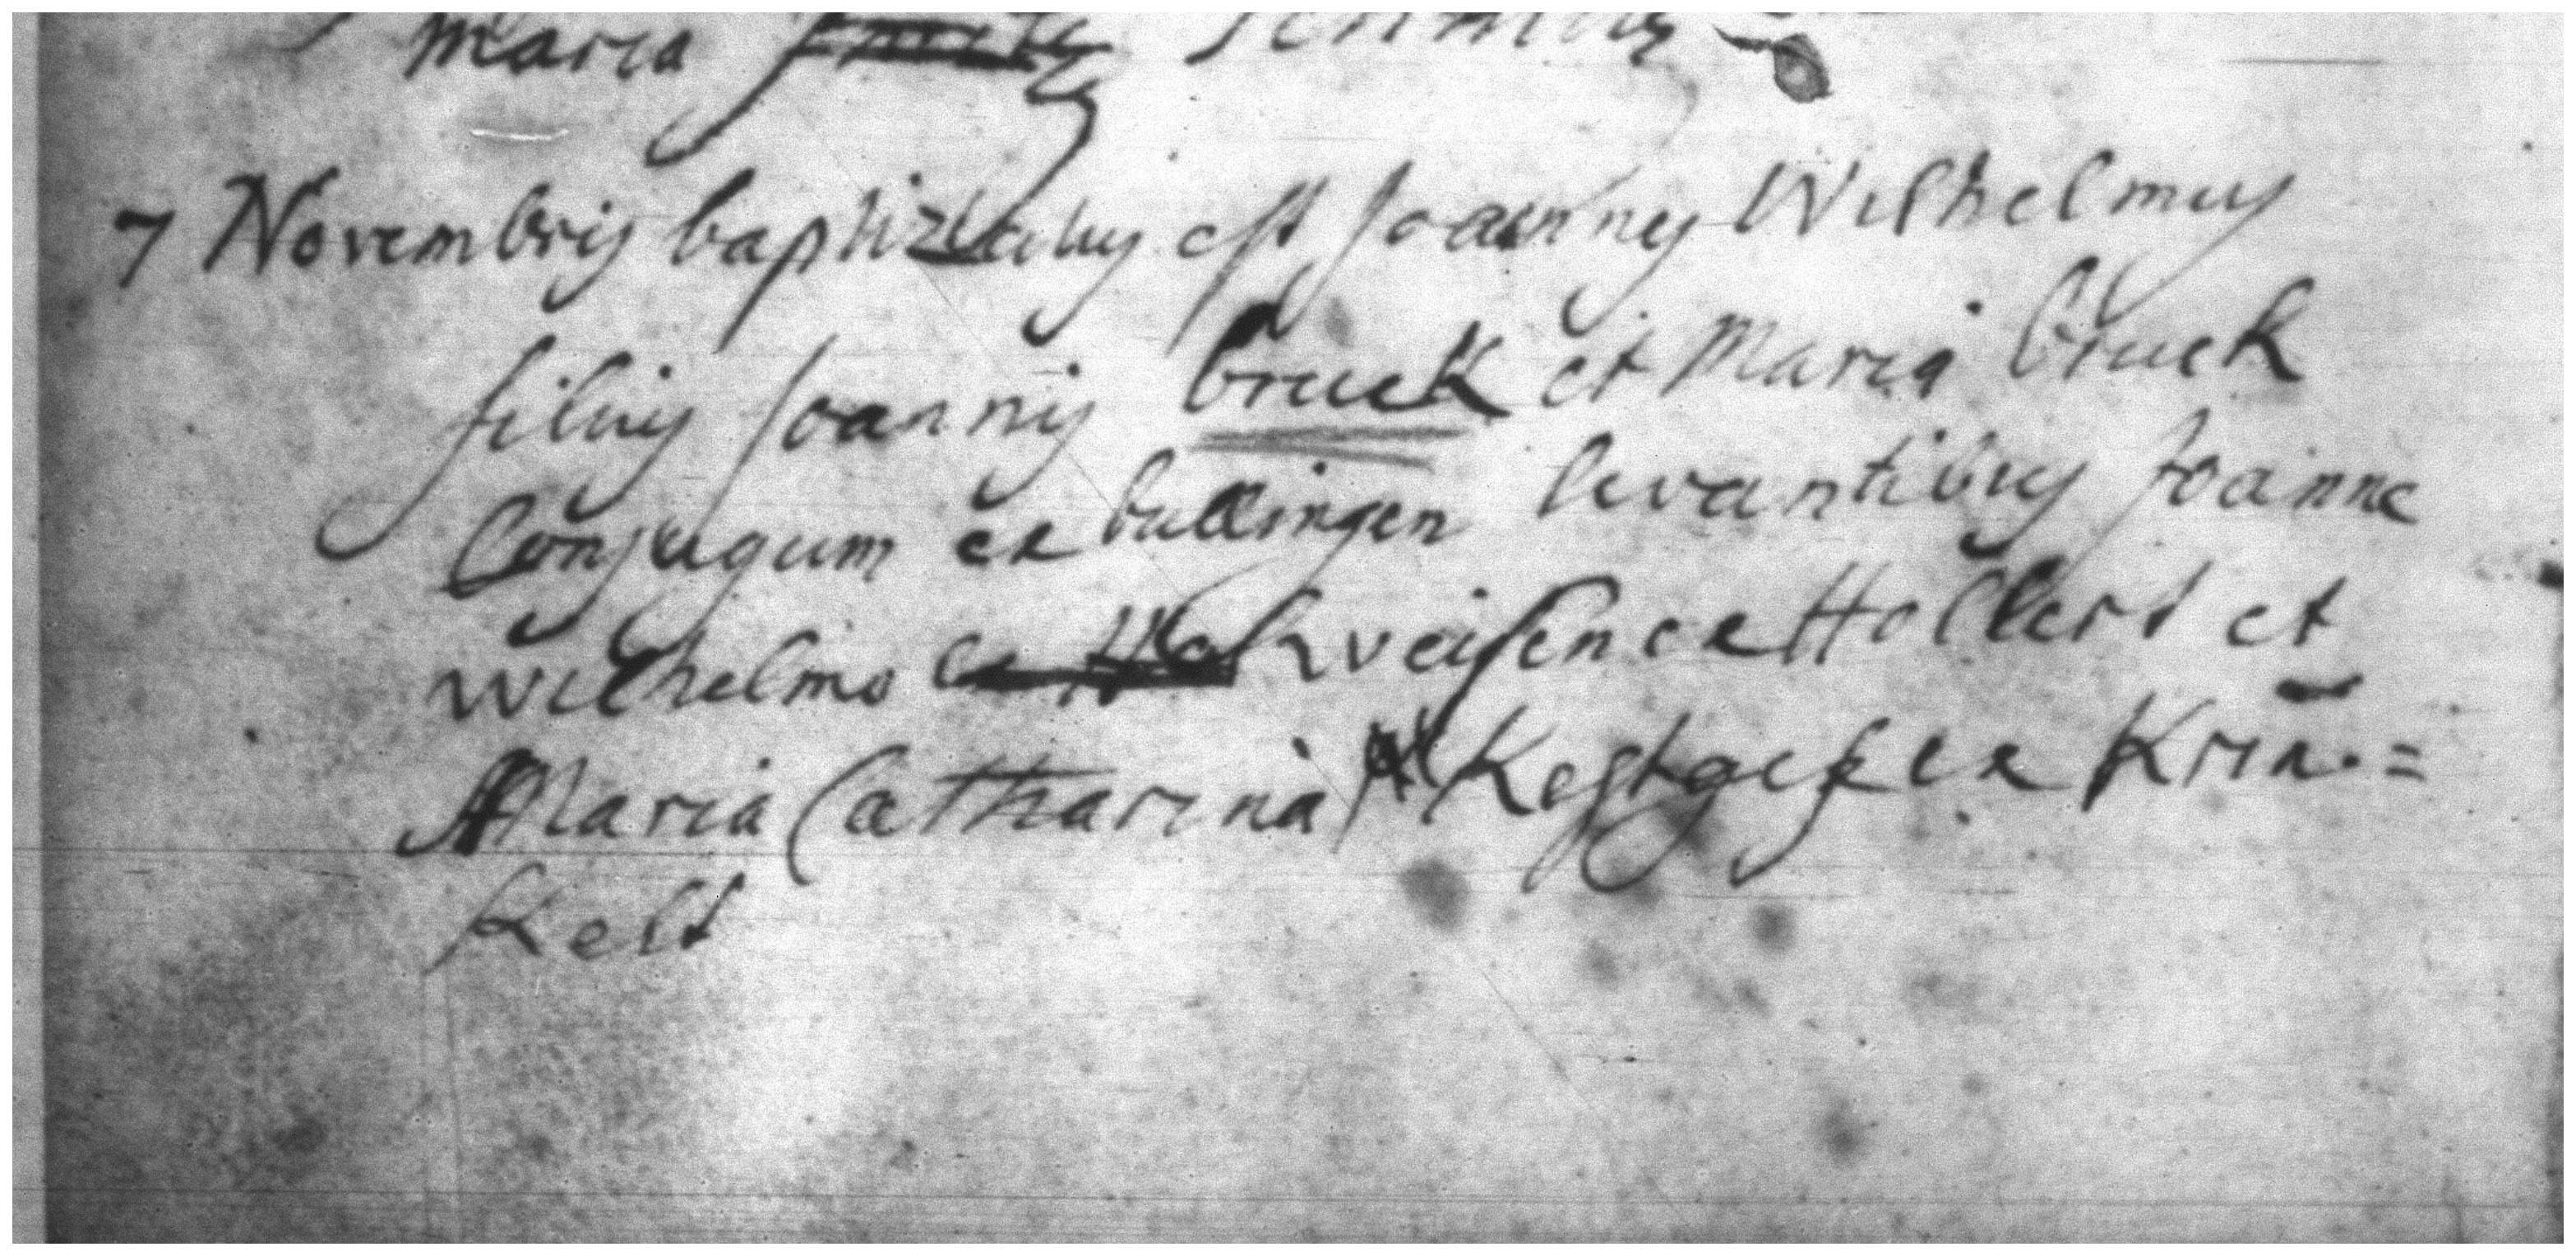 Maria
7 Novembris baptizatus est Joannes Wilhelmus
filius Joannis bruck et Maria bruck
Conjugum ex bullingen levantibus Joanne
Wilhelmo veisen ex Hollert et
Maria Catharina ex Krin=
Kelt